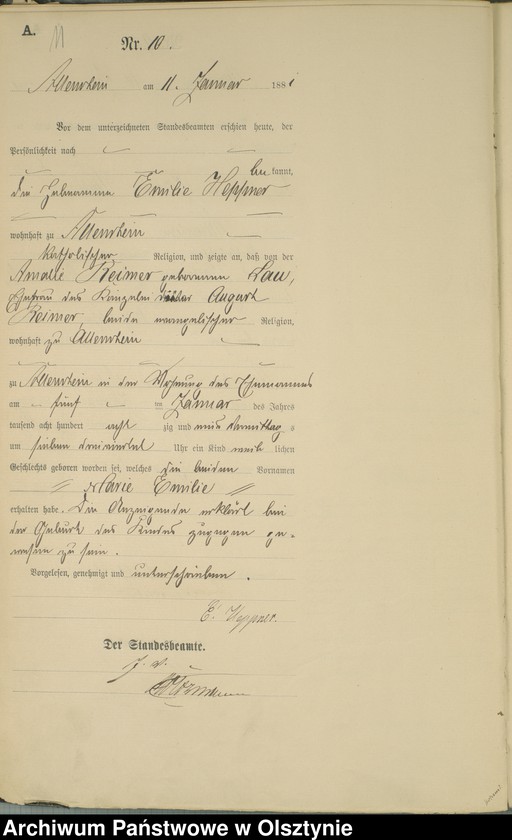 A.
11
Nr. 10.
Allenstein am 11. Januar 1881
Vor dem unterzeichneten Standesbeamten erschien heute, der
Persönlichkeit nach
bekannt,
die Hebamme Emilie Heppner
wohnhaft zu Allenstein
katholischer Religion, und zeigte an, daß von der
Amalie Reimer geborenen Lau,
Ehefrau des August
Reimer, beide evangelischer Religion,
wohnhaft zu Allenstein
zu Allenstein in der Wohnung des Ehemannes
am fünf ten Januar des Jahres
tausend acht hundert acht zig und eins Vormittags
um sieben dreiviertel Uhr ein Kind weib lichen
Geschlechts geboren worden sei, welches die beiden Vornamen
Marie Emilie
erhalten habe. Die Anzeigende erklärt bei
der Geburt des Kindes zugegen ge-
wesen zu sein.
Vorgelesen, genehmigt und unterschrieben.
E. Heppner.
Der Standesbeamte.
J. V.
Archiwum Państwowe w Olsztynie